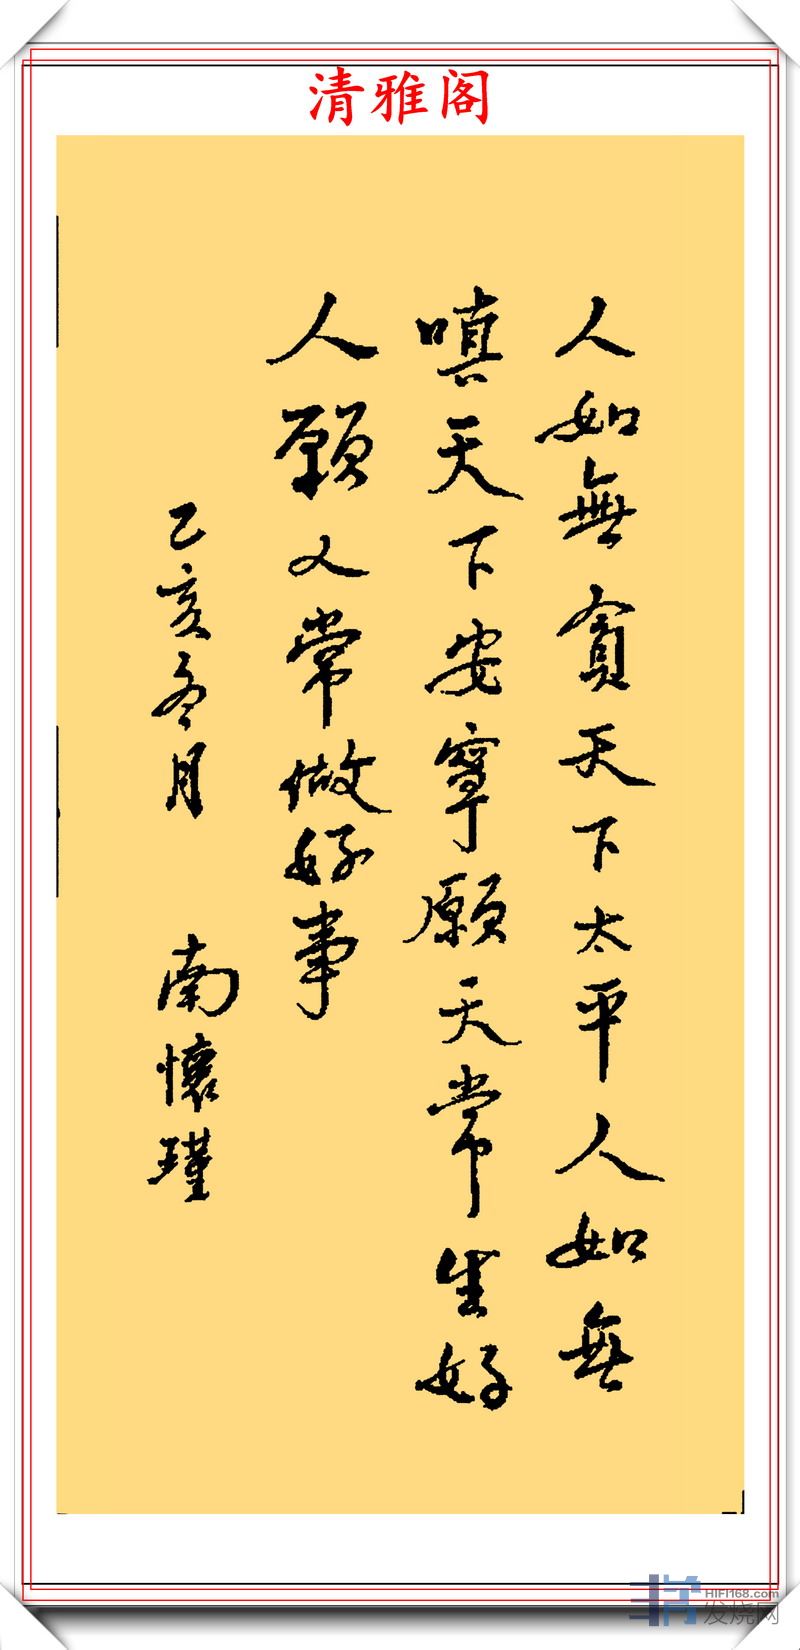 清雅阁
人如無貪天下太平人如無
嗔天下安寧願天常生好
人願人常做好事
乙亥冬月 南懷瑾
HIFI168.com
发烧网